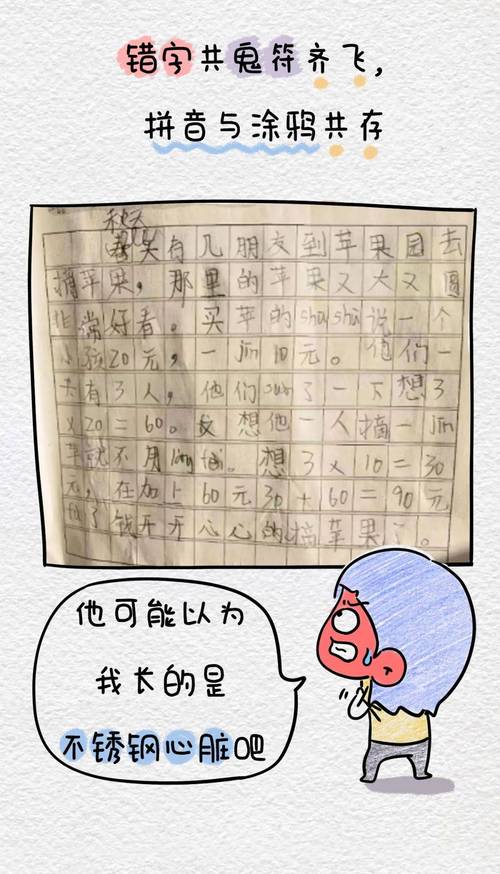 错字共鬼符齐飞,
拼音与涂鸦共存
秋天
有几朋友到苹果园去
摘苹果，那里的苹果又大又圆
非常好看。买苹的shushu说一个
小孩20元，一jin10元。他们一
共有3人，他们suan了一下想3
×20=60。想他一人摘一jin
苹就不用。想3×10=30
元，在加上60元30+60=90元
付了钱开开心心的摘苹果了。
他可能以为
我长的是
不锈钢心脏吧